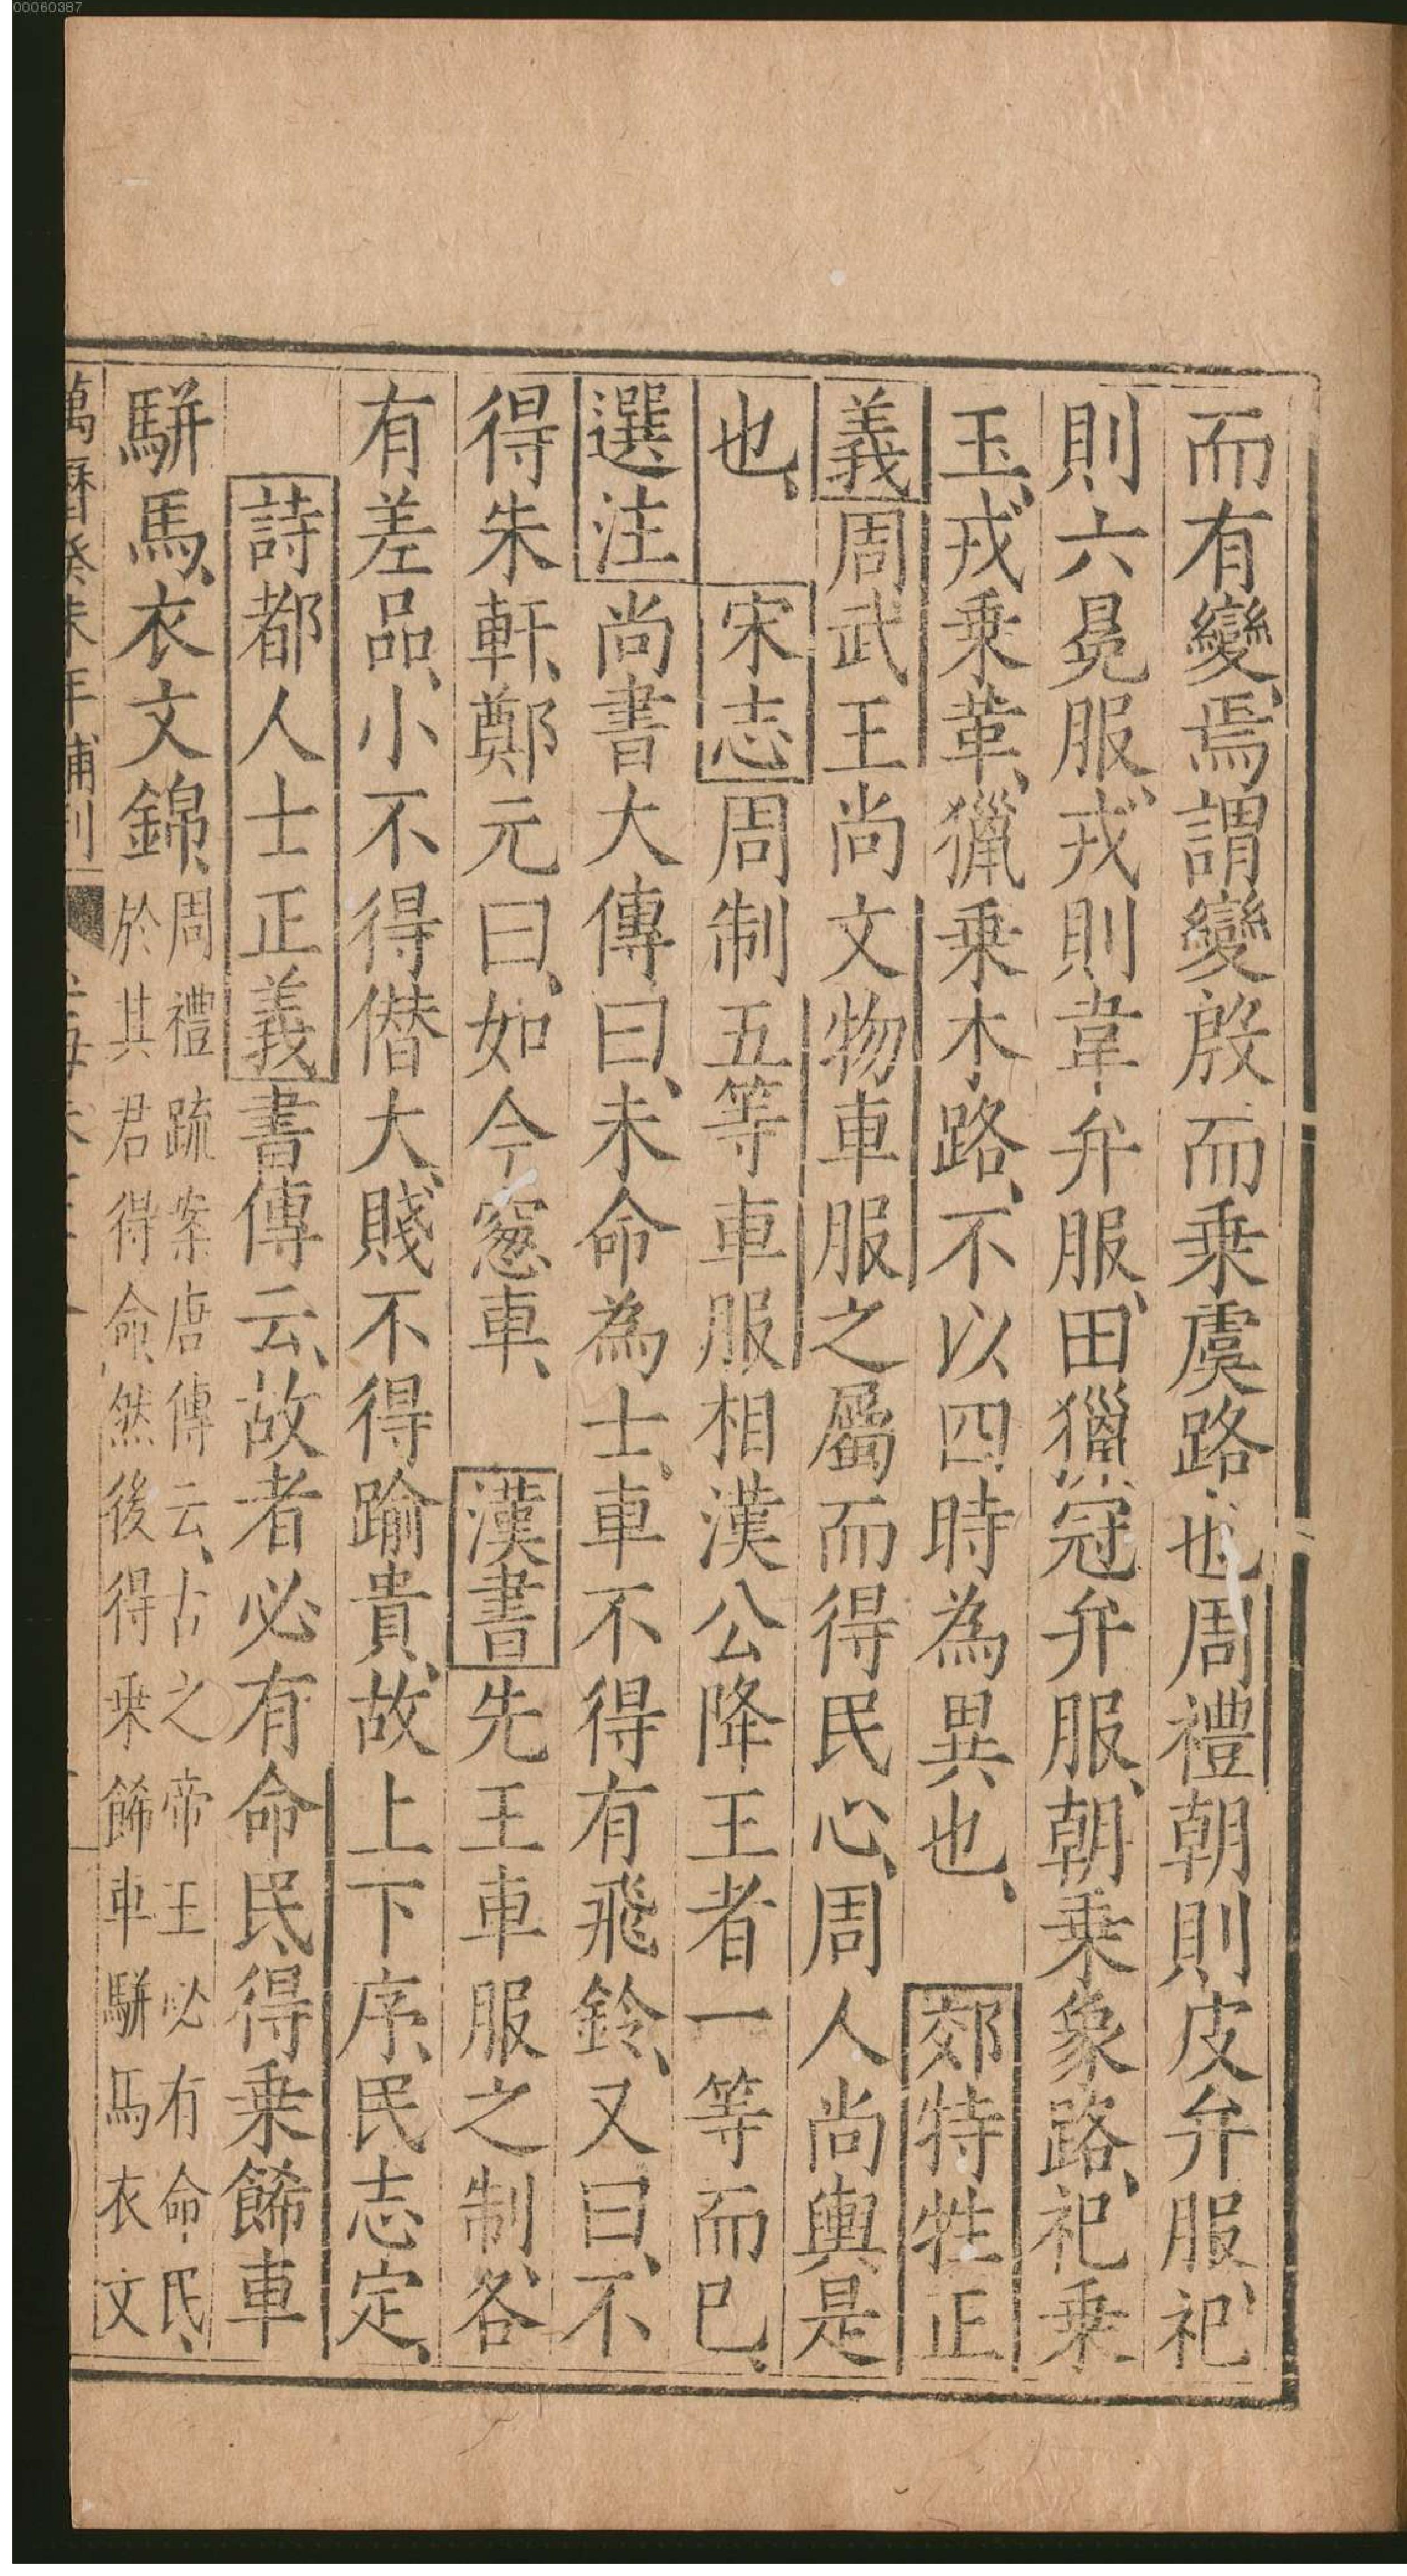 00060387
而有變焉謂變殷而乗虞路也周禮朝則皮弁服祀
則六冕服、戎則韋弁服、田獵冠弁服、朝乗象路、祀乗
玉、戎乗革、獵乗木路、不以四時為異也、　郊特牲正
義周武王尚文物車服之屬而得民心、周人尚輿是
也、　宋志周制五等車服相漢公降王者一等而已、
選注尚書大傳曰、未命為士、車不得有飛鈴、又曰、不
得朱軒、鄭元曰、如今窓車、　漢書先王車服之制、各
有差品、小不得僣大、賤不得踰貴、故上下序、民志定、
詩都人士正義書傳云、故者必有命民、得乗餙車
駢馬、衣文錦、周禮疏案唐傳云、古之帝王必有命民、
於其君得命、然後得乗餙車駢馬衣文
萬曆癸未年補刊